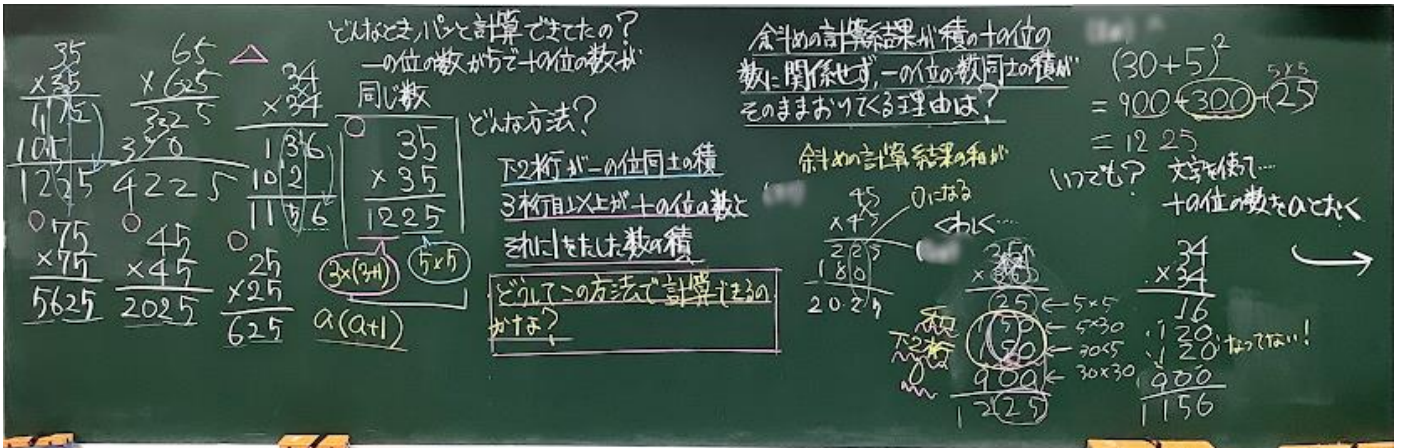 35
×35
175
105
1225
65
×65
325
390
4225
△
34
×34
136
102
1156
○
75
×75
5625
○
45
×45
2025
○
25
×25
625
どんなとき、パンと計算できてたの?
一の位の数が5で十の位の数が
同じ数
○
35
×35
1225
3×(3+1)
5×5
a(a+1)
どんな方法?
下2桁が一の位同士の積
3桁目以上が十の位の数と
それに1をたした数の積
どうしてこの方法で計算できるの
かな?
斜めの計算結果が積の十の位の
数に関係せず、一の位の数同士の積が
そのままおりてくる理由は?
斜めの計算結果の和が
0になる
45
×45
225
180
2025
くわしく…
35
×35
25 ← 5×5
150 ← 5×30
150 ← 30×5
900 ← 30×30
1225
和
下2桁
0
(30+5)²
= 900+300+25
5×5
= 1225
いつでも? 文字を使って…
十の位の数をaとおく
34
×34
16
120
120
なってない!
900
1156